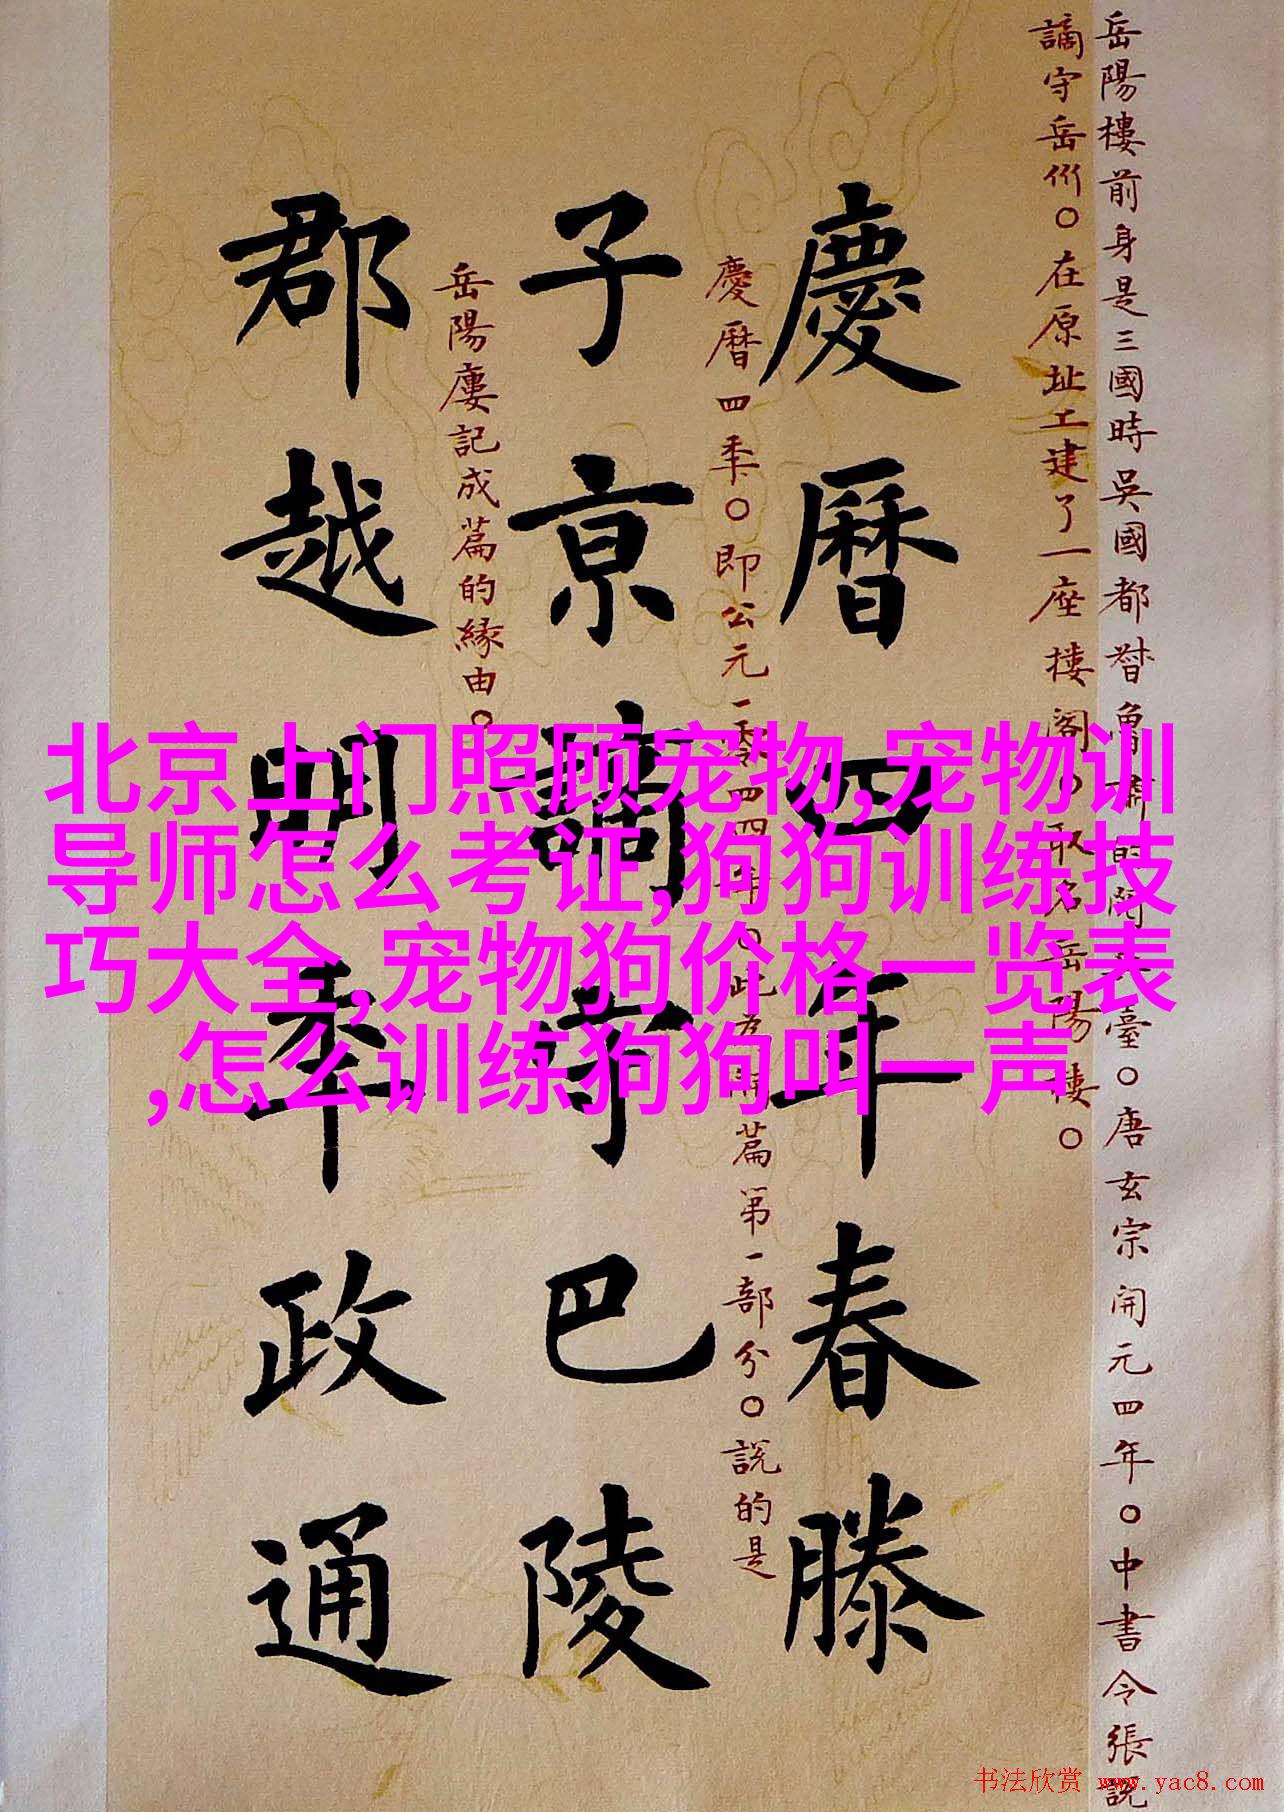 岳陽樓前身是三國時吳國都督魯肅的閱臺○唐玄宗開元四年○中書令張説
謫守岳州○在原址工建了一座樓閣○取名岳陽樓○
慶曆四年春滕
慶曆四年○即公元一零四四年○此為
篇第一部分○説的是
子京謫守巴陵
岳陽廔記成篇的緣由○
郡越明年政通
北京上门照顾宠物,宠物训
导师怎么考证,狗狗训练技
巧大全,宠物狗价格一览表
,怎么训练狗狗叫一声
书法欣赏 www.yac8.com